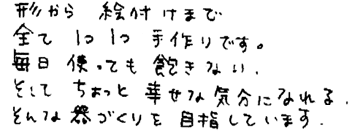 形から 絵付けまで
全て 1つ1つ 手作りです。
毎日 使っても 飽きない.
そして ちょっと 幸せな気分になれる.
そんな 器づくりを 目指しています.